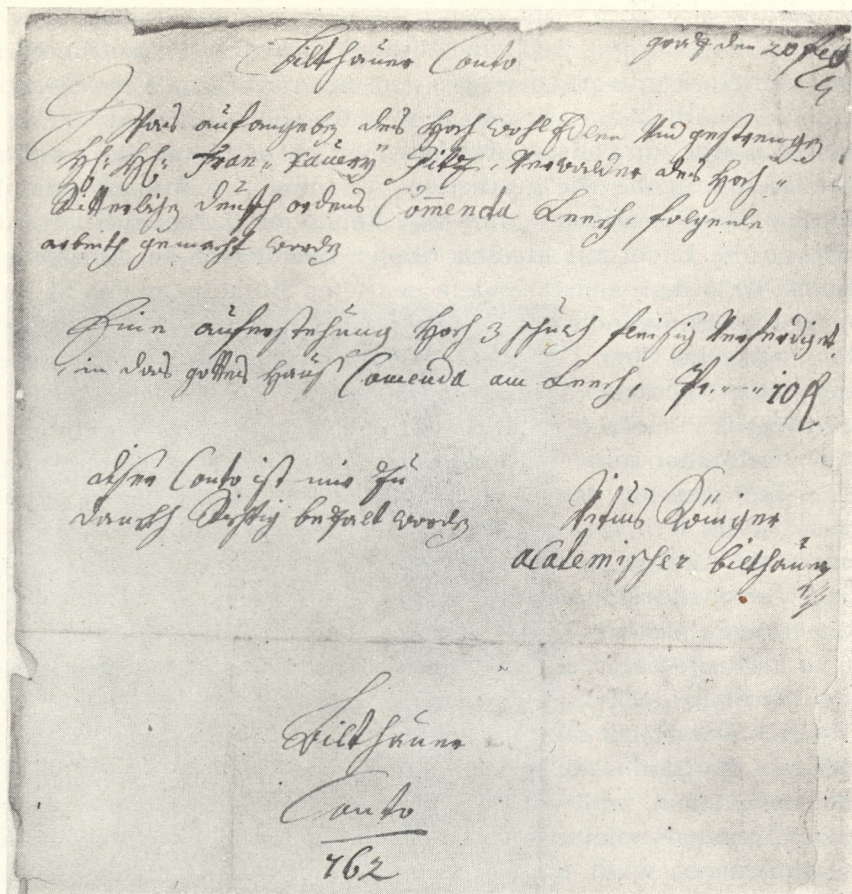 Bilthauer Conto
gratz den 20
Was auf angeben des Hoch wohl Edlen Und gestrengen
Hh: Hh: Fran„ Xavery Fitz, Verwalder des Hoch„
Ritterlichen deutsch ordens Commenda Leech, folgente
arbeith gemacht worden
Eine auferstehung Hoch 3 schuch fleisig Verferdiget,
in das gottes Hauß Comenda am Leech, Pr. 10 fl
diser Conto ist mir zu
danckh Richtig bezalt worden
Vitus Königer
academischer bilthauer
Bilthauer
Conto
762